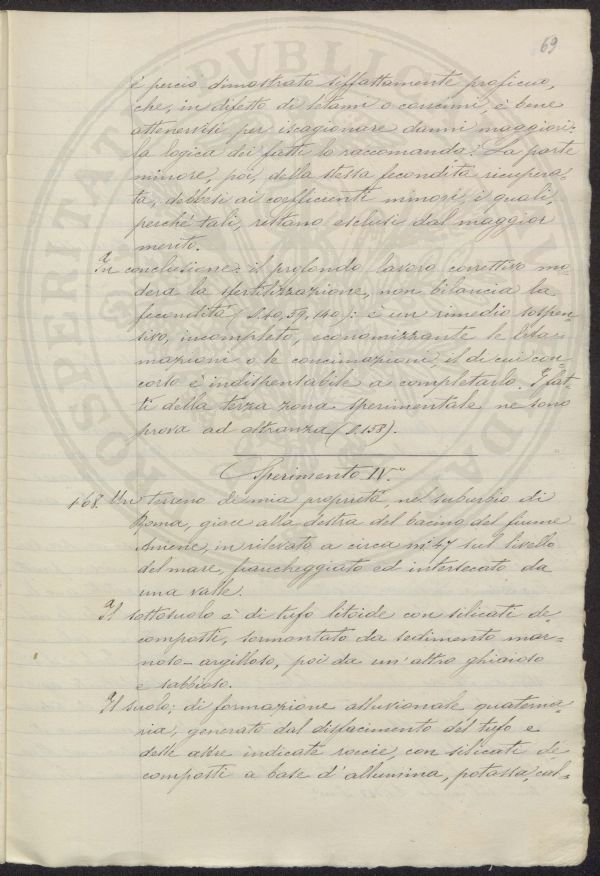 69
è perciò dimostrato siffattamente proficuo,
che, in difetto di letami o concimi, è bene
attenervisi per iscagionare danni maggiori:
la logica dei fatti lo raccomanda. La parte
minore, poi, della stessa fecondità ricupera=
ta, debbesi ai coefficienti minori, i quali,
perchè tali, restano esclusi dal maggior
merito.
In conclusione: il profondo lavoro correttivo mo=
dera la sfertilizzazione, non bilancia la
fecondità (§. 40, 59, 140): è un rimedio sospen=
sivo, incompleto, economizzante le leta=
mazioni o le concimazioni, il di cui con=
corso è indispensabile a completarlo. I fat=
ti della terza zona sperimentale ne sono
prova ad oltranza (§. 158).
Sperimento IV.°
168. Un terreno di mia proprietà, nel suburbio di
Roma, giace alla destra del bacino del fiume
Aniene, in rilevato a circa m.i 47 sul livello
del mare, fiancheggiato ed intersecato da
una valle.
Il sottosuolo è di tufo litoide con silicati de=
composti, sormontato da sedimento mar=
noso-argilloso, poi da un'altro ghiaioso
e sabbioso.
Il suolo, di formazione alluvionale quaterna=
ria, generato dal disfacimento del tufo e
delle altre indicate roccie, con silicati de=
composti a base d'allumina, potassa, cal=